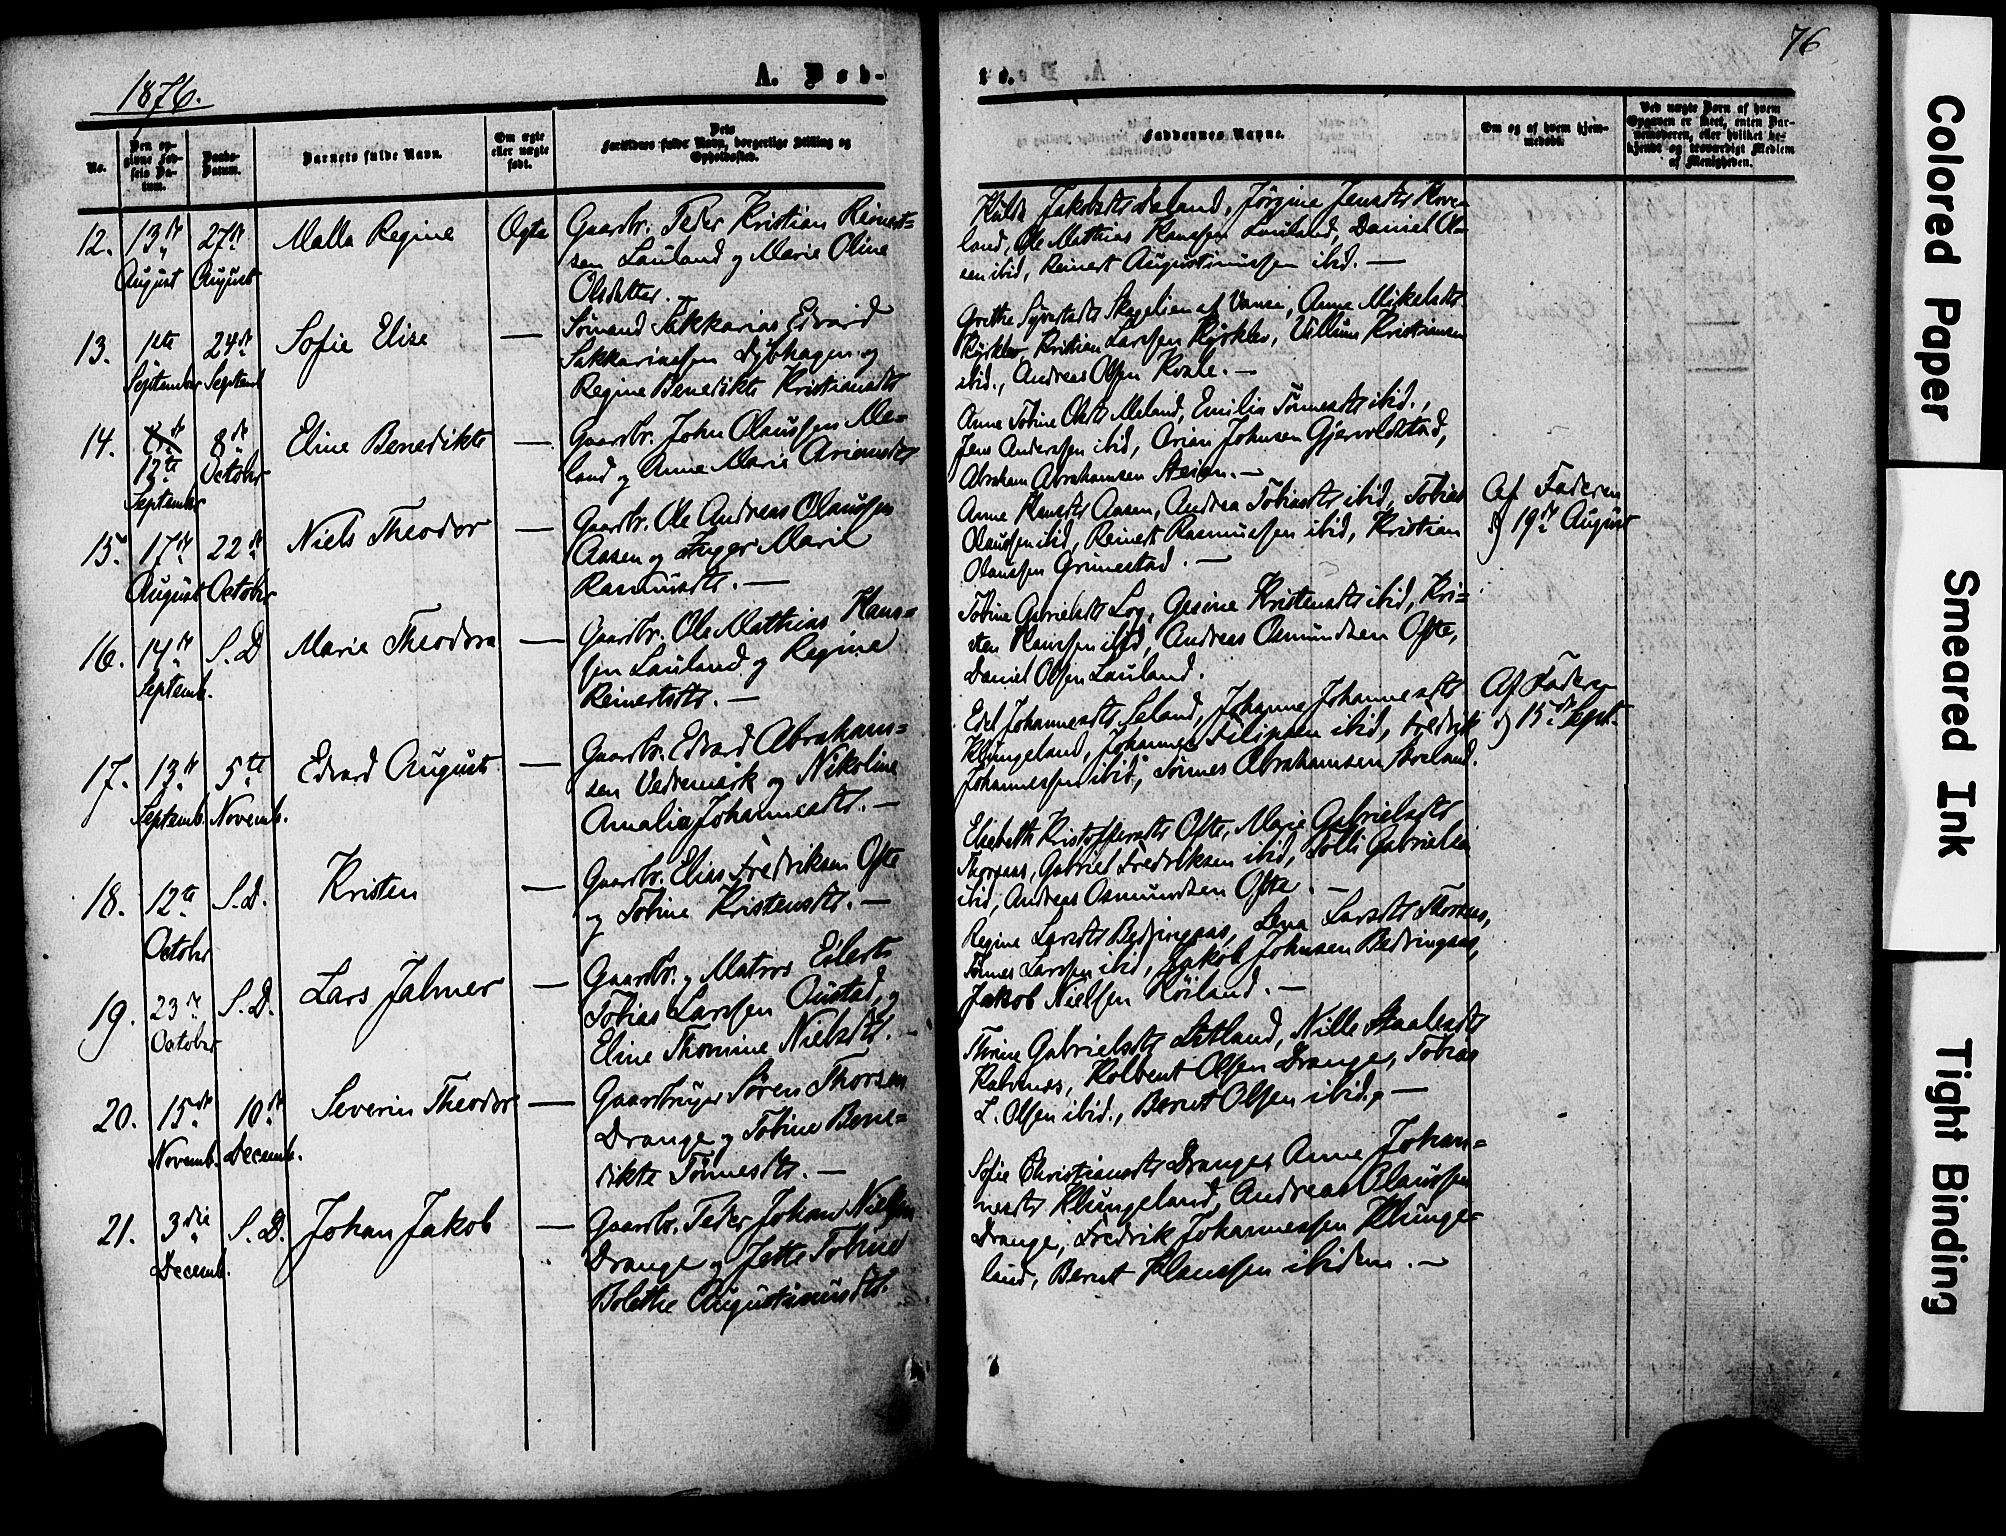 1876.
A. Døb-
No.
Den opgivne Fødsels Datum.
Daabs-Datum.
Barnets fulde Navn.
Om ægte eller uægte født.
Dets Forældres fulde Navn, borgerlige Stilling og Opholdssted.
12. 13de August 27de August Malla Regine Ægte Gaardbr. Peder Kristian Reinert-
sen Lauland og Marie Oline
Olsdatter.
13. 1ste September 24de Septemb Sofie Elise — Sømand Sakkarias Edvard
Sakkariassen Dybhagen og
Regine Benedikte Kristiansdtr
14. 12te September 8de October Eline Benedikte — Gaardbr. John Olaussen Me-
land og Anne Marie Ariansdtr
15. 17de August 22de October Niels Theodor — Gaardbr. Ole Andreas Olaussen
Aasen og Inger Marie
Rasmusdtr. —
16. 14de Septemb. S. D Marie Theodora — Gaardbr. Ole Mathias Hans-
sen Lauland og Regine
Reinertsdtr. —
17. 13de Septemb. 5te Novemb. Edvard August — Gaardbr. Edvard Abrahams-
sen Vedremork og Nikoline
Amalia Johannesdtr. —
18. 12te October S. D. Kristen — Gaardbr. Elias Fredriksen Ofte
og Tobine Kristensdtr. —
19. 23de October S. D. Lars Jalmer — Gaardbr. og Matros Eilert
Tobias Larssen Austad, og
Eline Thomine Nielsdtr. —
20. 15de Novemb. 10de Decemb. Severin Theodor — Gaardbruger Søren Thorsen
Drange og Tobine Bene-
dikte Tønnesdtr. —
21. 3die Decemb. S. D. Johan Jakob — Gaardbr. Peder Johan Nielsen
Drange og Jette Tobine
Bolethe Augustinusdtr.
76
te.
Faddernes Navne.
Om og af hvem hjemmedøbt.
Ved uægte Børn af hvem Opgaven er skeet, enten Barnemoderen, eller hvilket bekjendt og troværdigt Medlem af Menigheden.
Hulda Jakobsdtr Leland, Jørgine Jensdtr Hove-
land, Ole Mathias Hanssen Lauland, Daniel Ol-
sen ibid, Reinert Augustinussen ibid. —
Grethe Syvertsdtr Skegelien af Vanse, Anne Mikelsdtr
Kjørklev, Kristian Larssen Kjørklev, Villum Kristiansen
ibid., Andreas Olsen Kvale. —
Anne Tobine Olsdtr Meland, Emilie Tønnesdtr ibid.,
Jens Anderssen ibid, Arian Johnsen Gjervoldstad,
Abraham Abrahamsen Steien. —
Anne Hansdtr Aasen, Andrea Tobiasdtr ibid, Tobias
Olaussen ibid, Reinert Rasmussen ibid, Kristian
Olaussen Grimestad. —
Af Faderen
d 19de August
Tobine Gabrielsdtr Log, Gesine Kristensdtr ibid, Kri-
sten Hanssen ibid, Andreas Osmundsen Ofte,
Daniel Olsen Lauland.
Edel Johannesdtr Leland, Johanne Johannesdtr
Klungeland, Johannes Filipsen ibid, Fredrik
Johannessen ibid, Tønnes Abrahamsen Hoeland.
Af Faderen
d 15de Sept.
Elisebeth Kristoffersdtr Ofte, Marie Gabrielsdtr
Thorpaas, Gabriel Fredriksen ibid, Tolli Gabrielsen
ibid, Andreas Osmundsen Ofte. —
Regine Larsdtr Bedringaas, Lena Larsdtr Thornes,
Tønnes Larssen ibid, Jakob Johnsen Bedringaas,
Jakob Nielsen Røiland. —
Thrine Gabrielsdtr Sletland, Nille Staalesdtr
Kalvenes, Kolbent Olsen Drange, Tobias
L. Olsen ibid., Bernt Olsen ibid., —
Sofie Christiansdtr Drange, Anne Johan-
nesdtr Klungeland, Andreas Olaussen
Drange, Fredrik Johannessen Klunge-
land, Bernt Klaussen ibidem. —
Colored Paper
Smeared Ink
Tight Binding